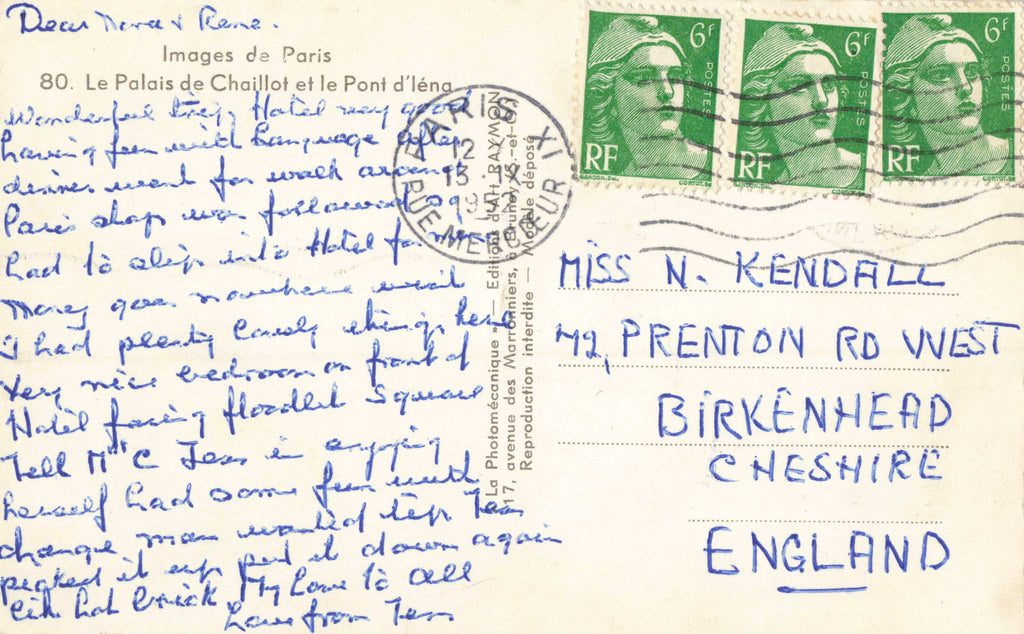 Dear Nora & Rene.
Images de Paris
80. Le Palais de Chaillot et le Pont d'Iéna
Wonderful trip, Hotel very good
having fun with language after
dinner went for walk around
Paris shop was followed so
had to slip into Hotel for
Money goes nowhere wish
I had plenty lovely things here
Very nice bedroom on front of
Hotel facing floodlit Square
Tell Mrs C Tess is enjoying
herself had some fun with
change man wanted tip Tess
picked it up put it down again
like hot brick My Love to all
Love from Tess
"La Photomécanique" — Editions d'Art RAYMON
117, avenue des Marronniers, à Brunoy S.-et-O.
Reproduction interdite — Modèle déposé
PARIS XI
12
13 IX
195
RUE MERCŒUR
6F
POSTES
RF
GANDON.DEL
CORTOT.SC
6F
POSTES
RF
GANDON.DEL
CORTOT.SC
6F
POSTES
RF
GANDON.DEL
CORTOT.SC
MISS N. KENDALL
72, PRENTON RD WEST
BIRKENHEAD
CHESHIRE
ENGLAND